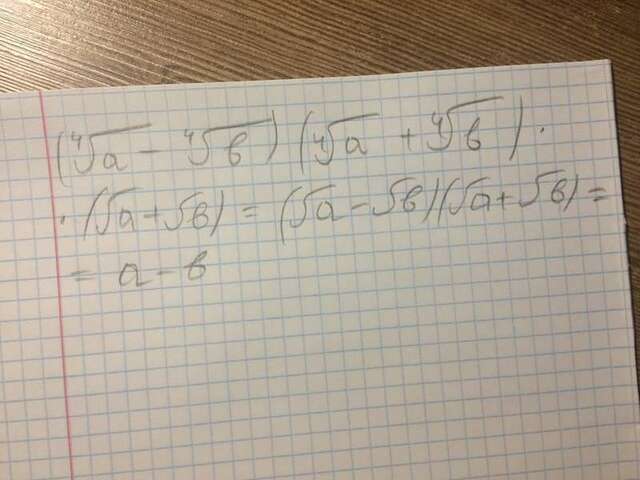 (⁴√a − ⁴√b)(⁴√a + ⁴√b) ·
· (√a + √b) = (√a − √b)(√a + √b) =
= a − b